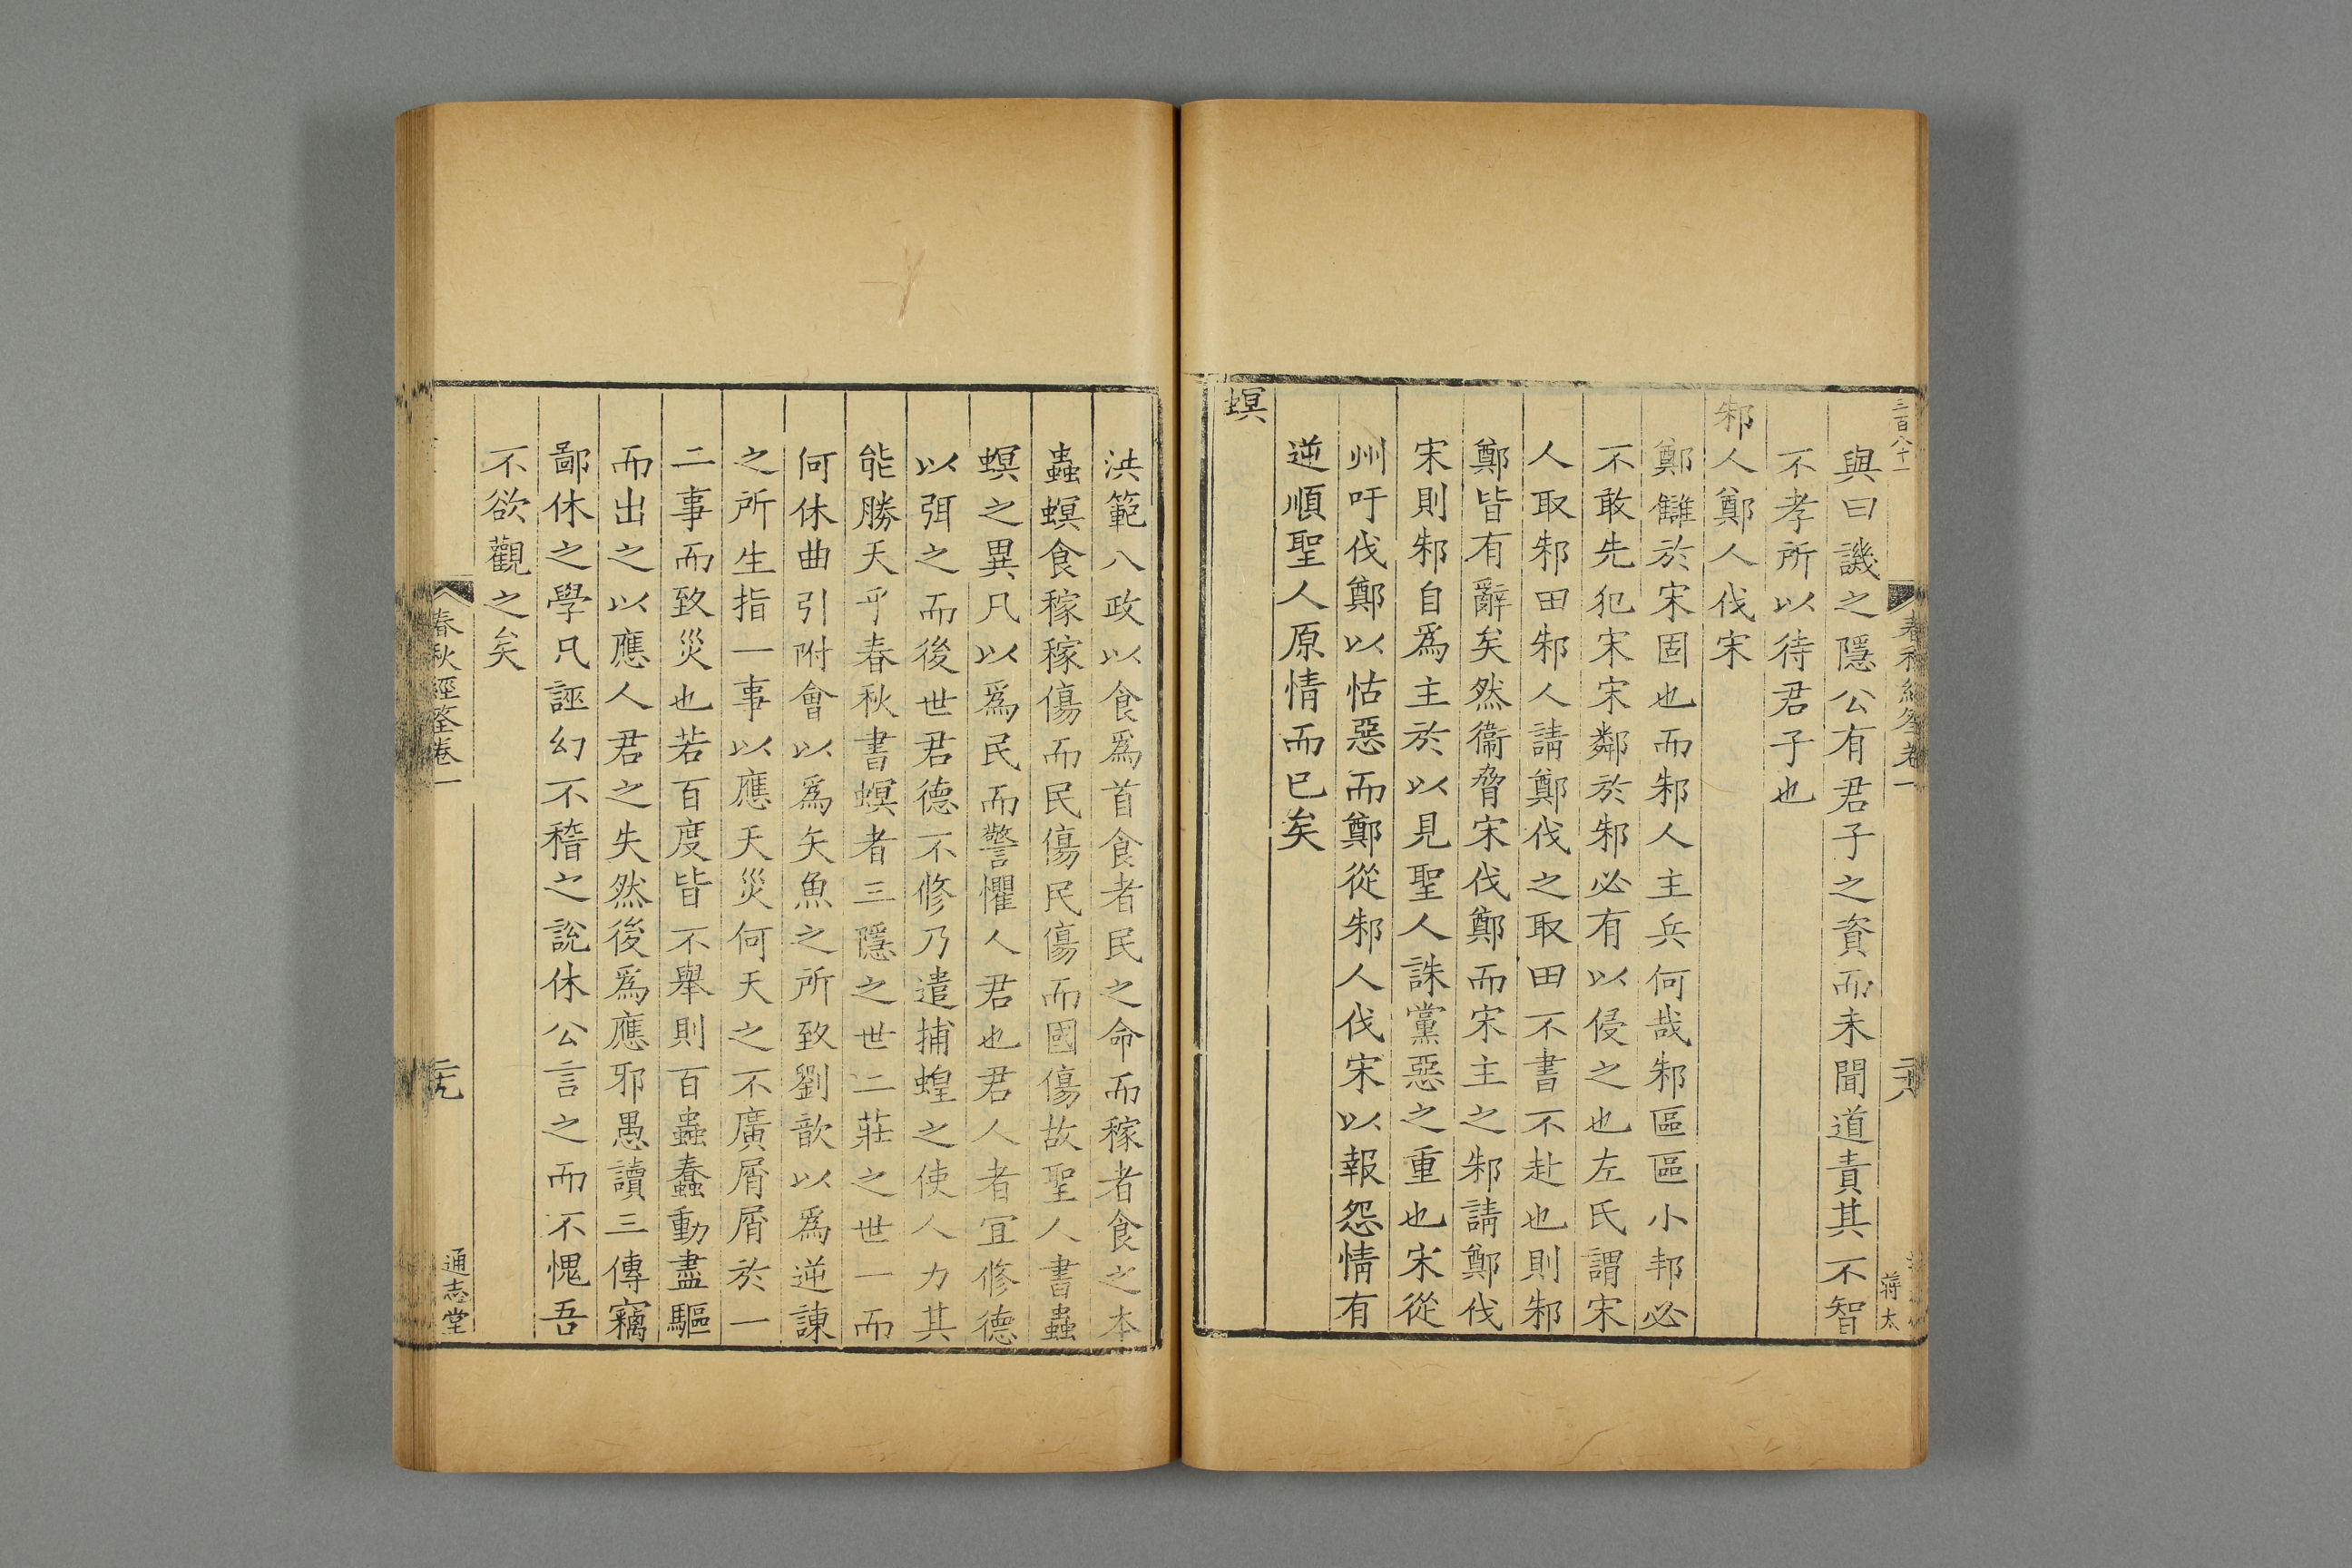 三百八十一
春秋經筌卷一
二十八
蔣太
與曰譏之隱公有君子之資而未聞道責其不智
不孝所以待君子也
邾人鄭人伐宋
鄭讎於宋固也而邾人主兵何哉邾區區小邦必
不敢先犯宋宋鄰於邾必有以侵之也左氏謂宋
人取邾田邾人請鄭伐之取田不書不赴也則邾
鄭皆有辭矣然衞脅宋伐鄭而宋主之邾請鄭伐
宋則邾自爲主於以見聖人誅黨惡之重也宋從
州吁伐鄭以怙惡而鄭從邾人伐宋以報怨情有
逆順聖人原情而已矣
螟
洪範八政以食爲首食者民之命而稼者食之本
蟲螟食稼稼傷而民傷民傷而國傷故聖人書蟲
螟之異凡以爲民而警懼人君也君人者宜修德
以弭之而後世君德不修乃遣捕蝗之使人力其
能勝天乎春秋書螟者三隱之世二莊之世一而
何休曲引附會以爲矢魚之所致劉歆以爲逆諫
之所生指一事以應天災何天之不廣屑屑於一
二事而致災也若百度皆不舉則百蟲蠢動盡驅
而出之以應人君之失然後爲應邪愚讀三傳竊
鄙休之學凡誣幻不稽之說休公言之而不愧吾
不欲觀之矣
春秋經筌卷一
二十九
通志堂